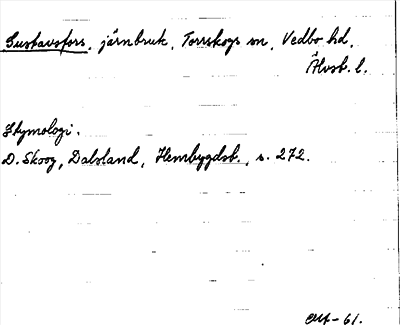 Gustavsfors, järnbruk, Torrskogs sn, Vedbo hd,
Älvsb. l.
Etymologi.
D. Skoog, Dalsland, Hembygdsb., s. 272.
-61.